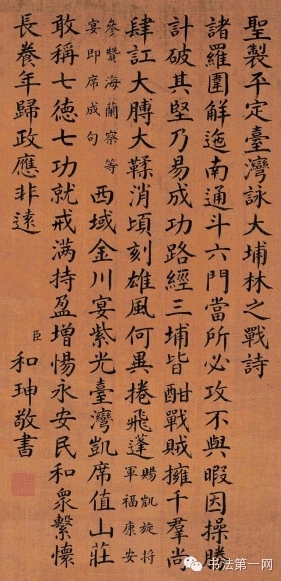 聖製平定臺灣詠大埔林之戰詩
諸羅圍解迤南通斗六門當所必攻不與暇因操勝
計破其堅乃易成功路經三埔皆酣戰賊擁千羣尚
肆訌大膊大鞣消頃刻雄風何異捲飛蓬
賜凱旋將
軍福康安
參贊海蘭察等
宴即席成句
西域金川宴紫光臺灣凱席值山莊
敢稱七德七功就戒滿持盈增惕永安民和衆繫懷
長養年歸政應非遠
臣和珅敬書
书法第一网